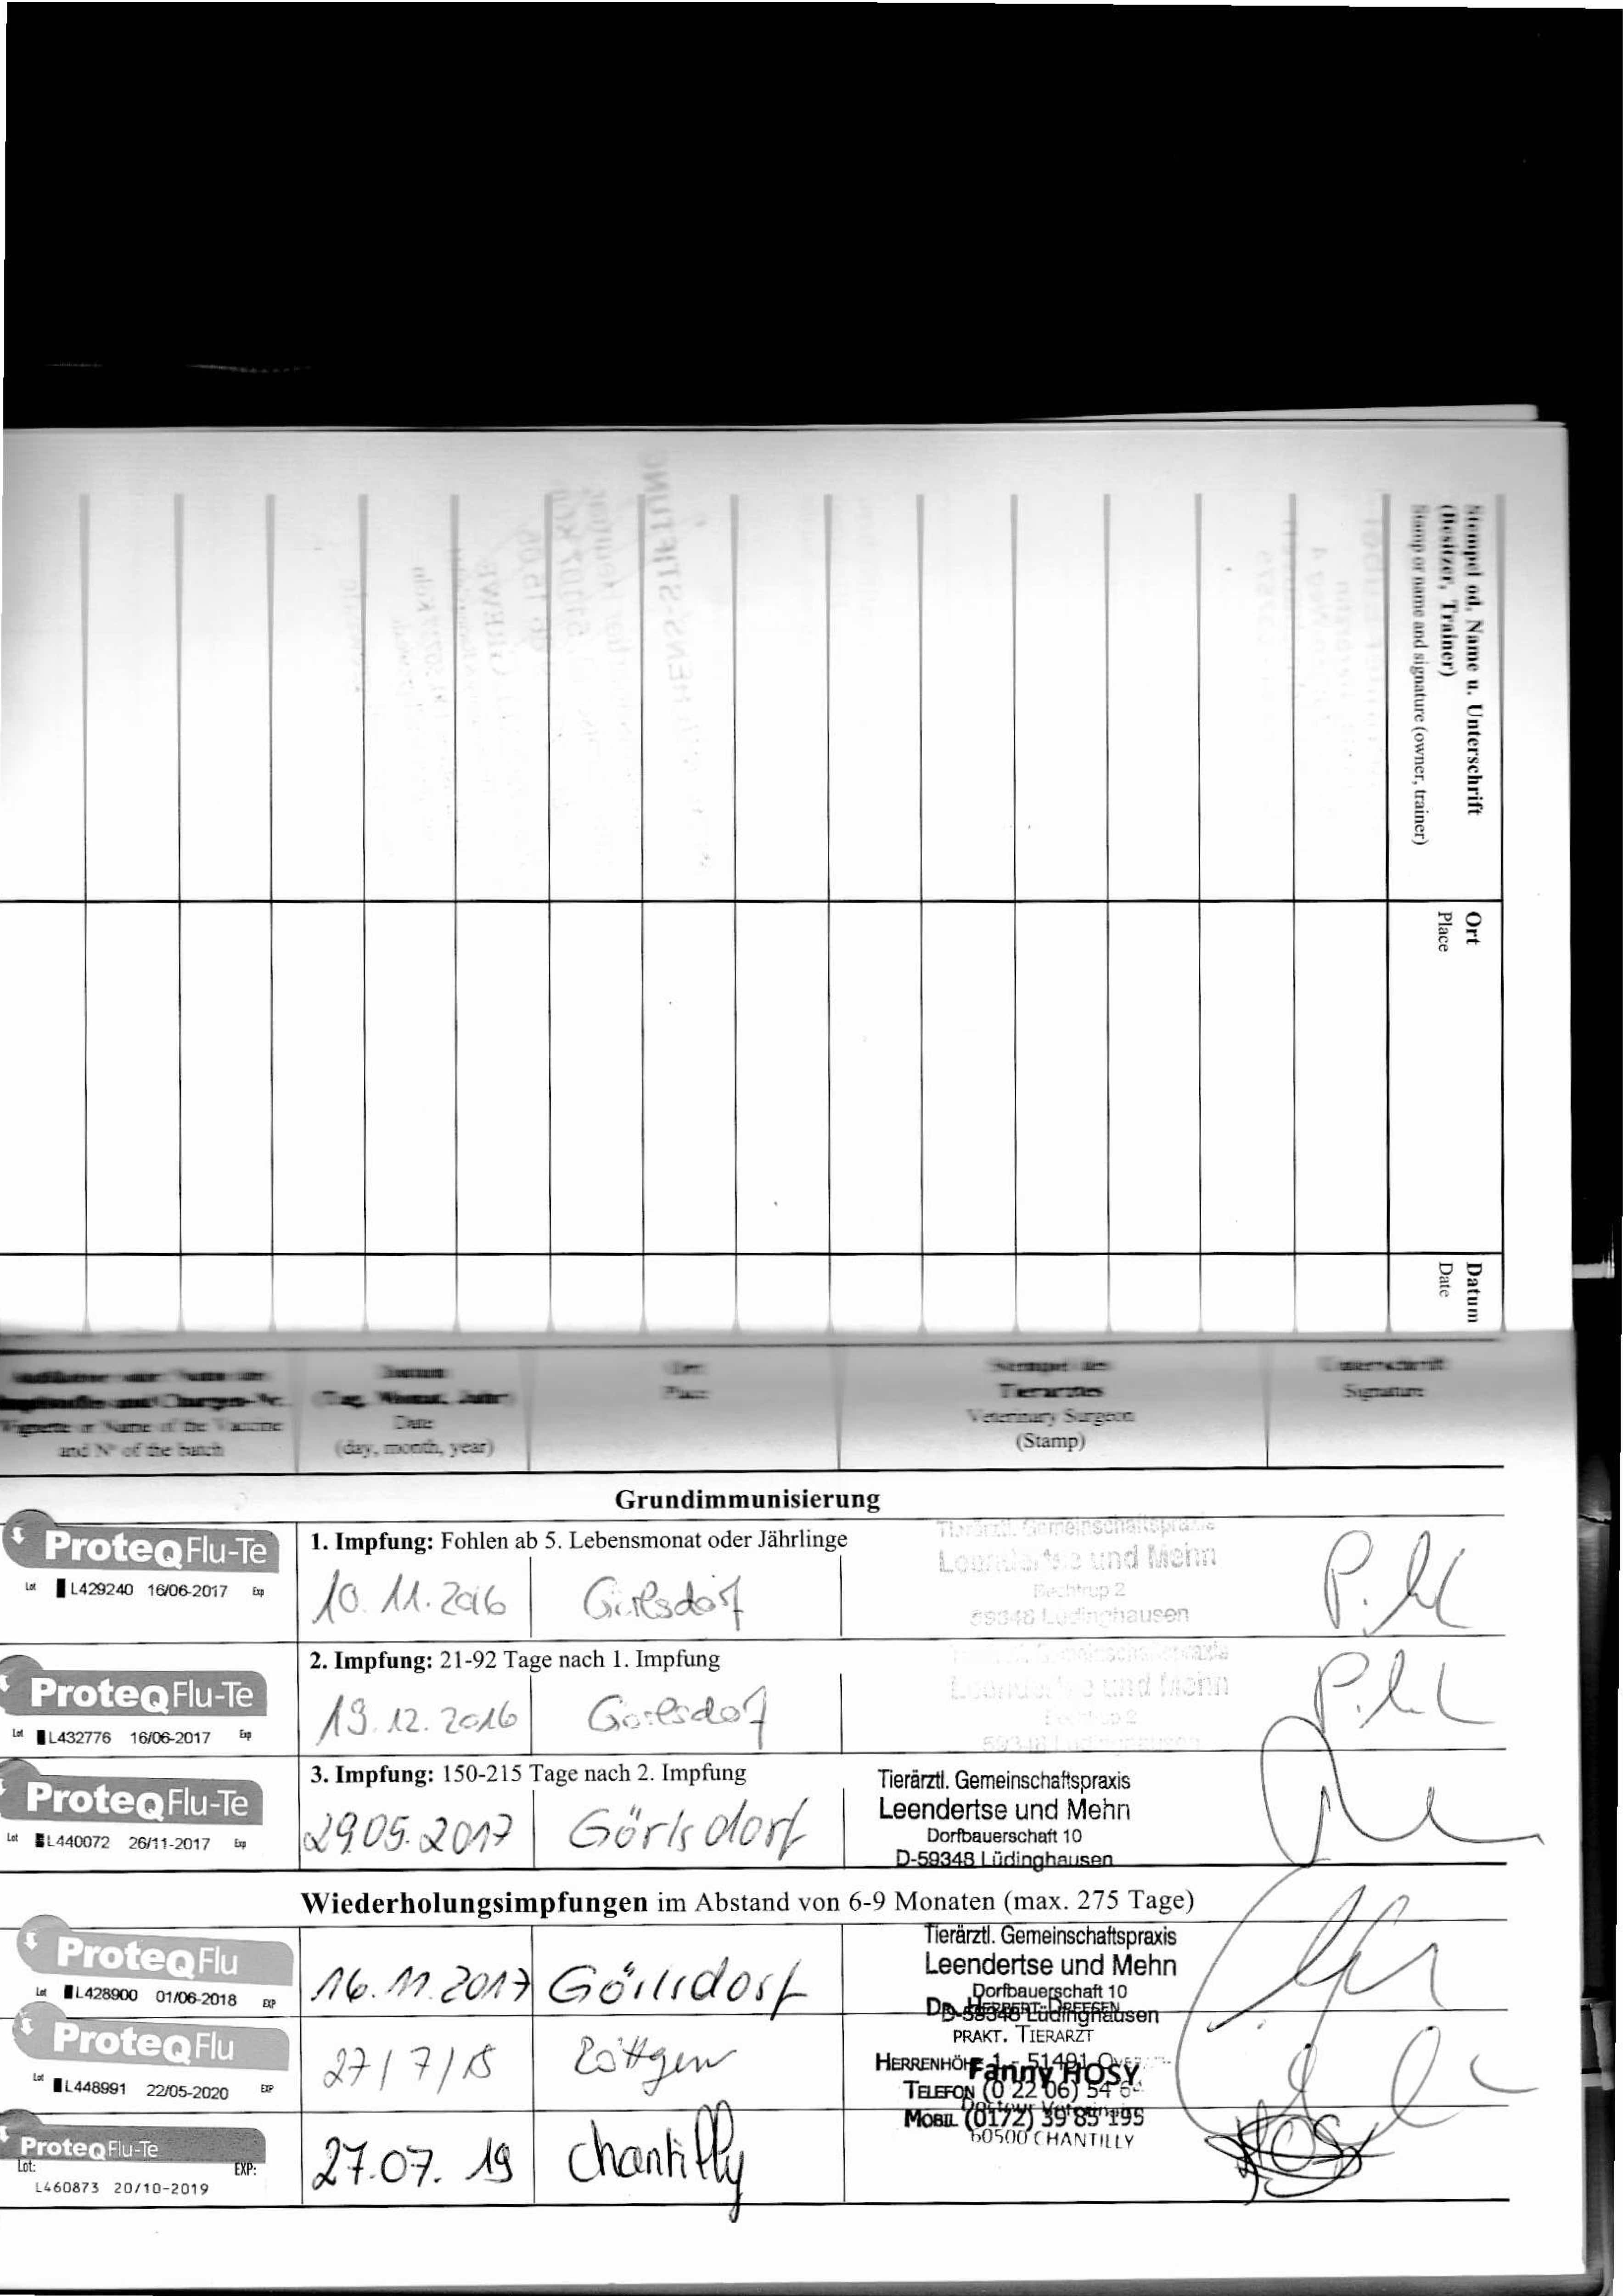 Stempel od. Name u. Unterschrift
(Besitzer, Trainer)
Stamp or name and signature (owner, trainer)
Ort
Place
Datum
Date
Vignette or Name of the Vaccine
and N° of the batch
Datum
(Tag, Monat, Jahr)
Date
(day, month, year)
Ort
Place
Stempel des
Tierarztes
Veterinary Surgeon
(Stamp)
Unterschrift
Signature
Grundimmunisierung
ProteqFlu-Te
Lot L429240 16/06-2017 Exp
1. Impfung: Fohlen ab 5. Lebensmonat oder Jährlinge
10.11.2016
Görlsdorf
Tierärztl. Gemeinschaftspraxis
Leendertse und Mehn
Bechtrup 2
59348 Lüdinghausen
ProteqFlu-Te
Lot L432776 16/06-2017 Exp
2. Impfung: 21-92 Tage nach 1. Impfung
19.12.2016
Görlsdorf
Tierärztl. Gemeinschaftspraxis
Leendertse und Mehn
Bechtrup 2
59348 Lüdinghausen
ProteqFlu-Te
Lot L440072 26/11-2017 Exp
3. Impfung: 150-215 Tage nach 2. Impfung
29.05.2017
Görlsdorf
Tierärztl. Gemeinschaftspraxis
Leendertse und Mehn
Dorfbauerschaft 10
D-59348 Lüdinghausen
Wiederholungsimpfungen im Abstand von 6-9 Monaten (max. 275 Tage)
ProteqFlu
Lot L428900 01/06-2018 EXP
16.11.2017
Görlsdorf
Tierärztl. Gemeinschaftspraxis
Leendertse und Mehn
Dorfbauerschaft 10
D-59348 Lüdinghausen
ProteqFlu
Lot L448991 22/05-2020 EXP
27/7/18
Röttgen
DR. HERBERT DREESEN
PRAKT. TIERARZT
HERRENHÖHE 1 - 51491
TELEFON (0 22 06) 54 64
MOBIL (0172) 39 85 195
ProteqFlu-Te
Lot: EXP:
L460873 20/10-2019
27.07.19
Chantilly
Fanny HOSY
Docteur Vétérinaire
60500 CHANTILLY